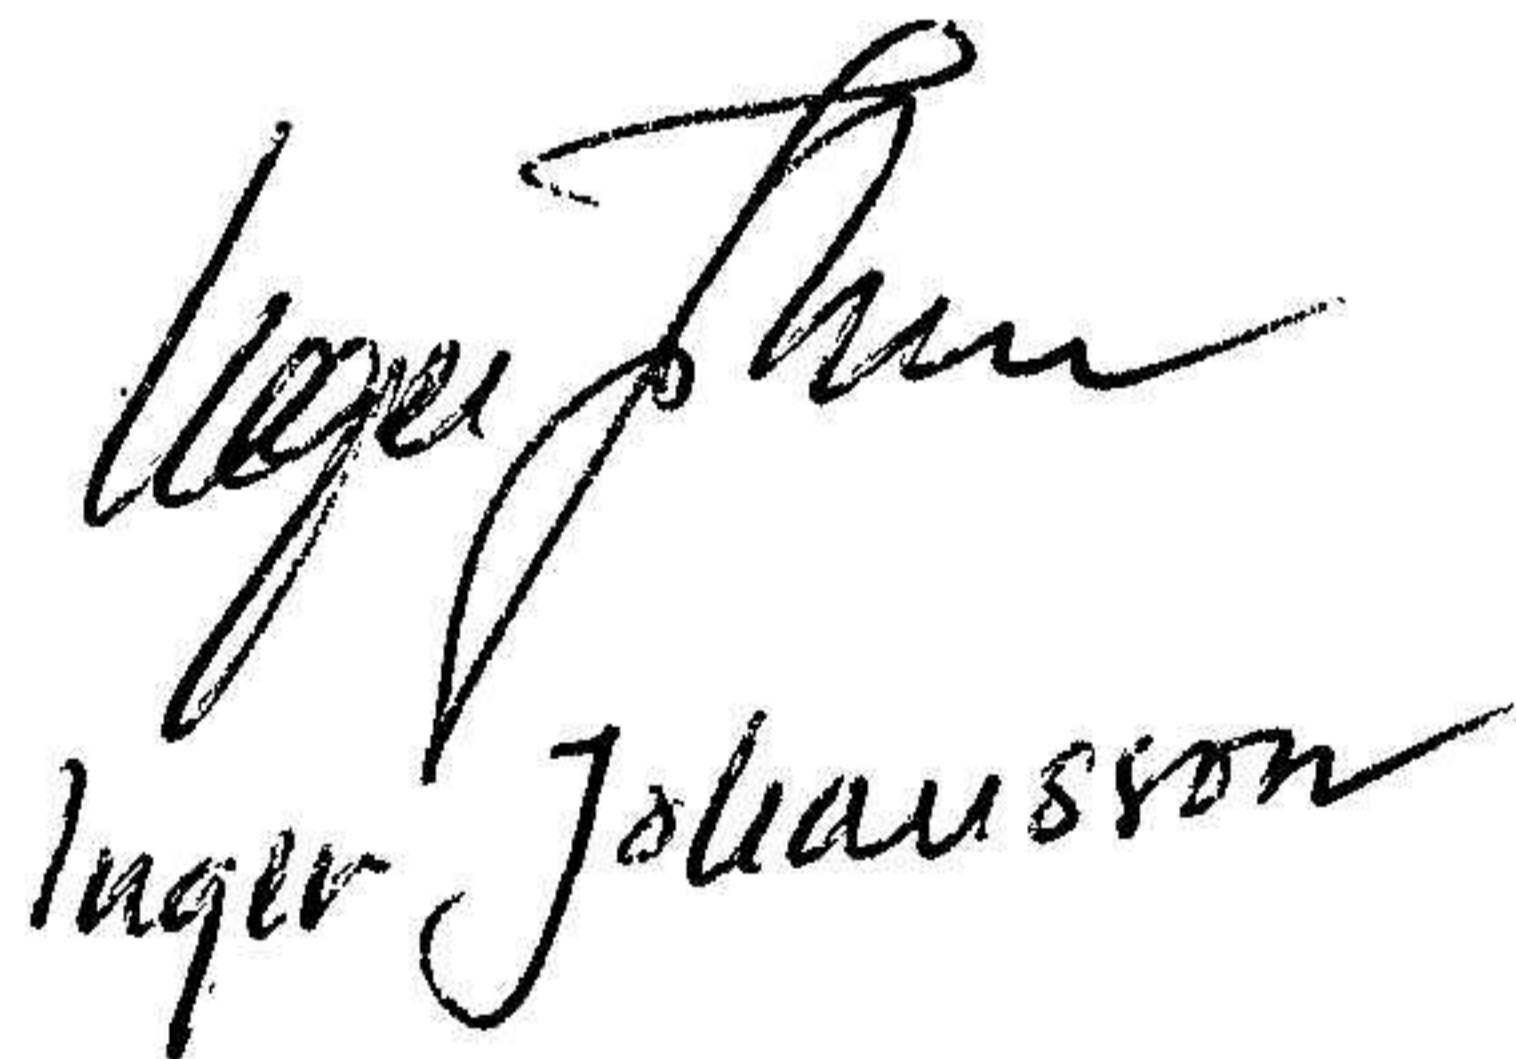 Inger Johansson
Inger Johansson